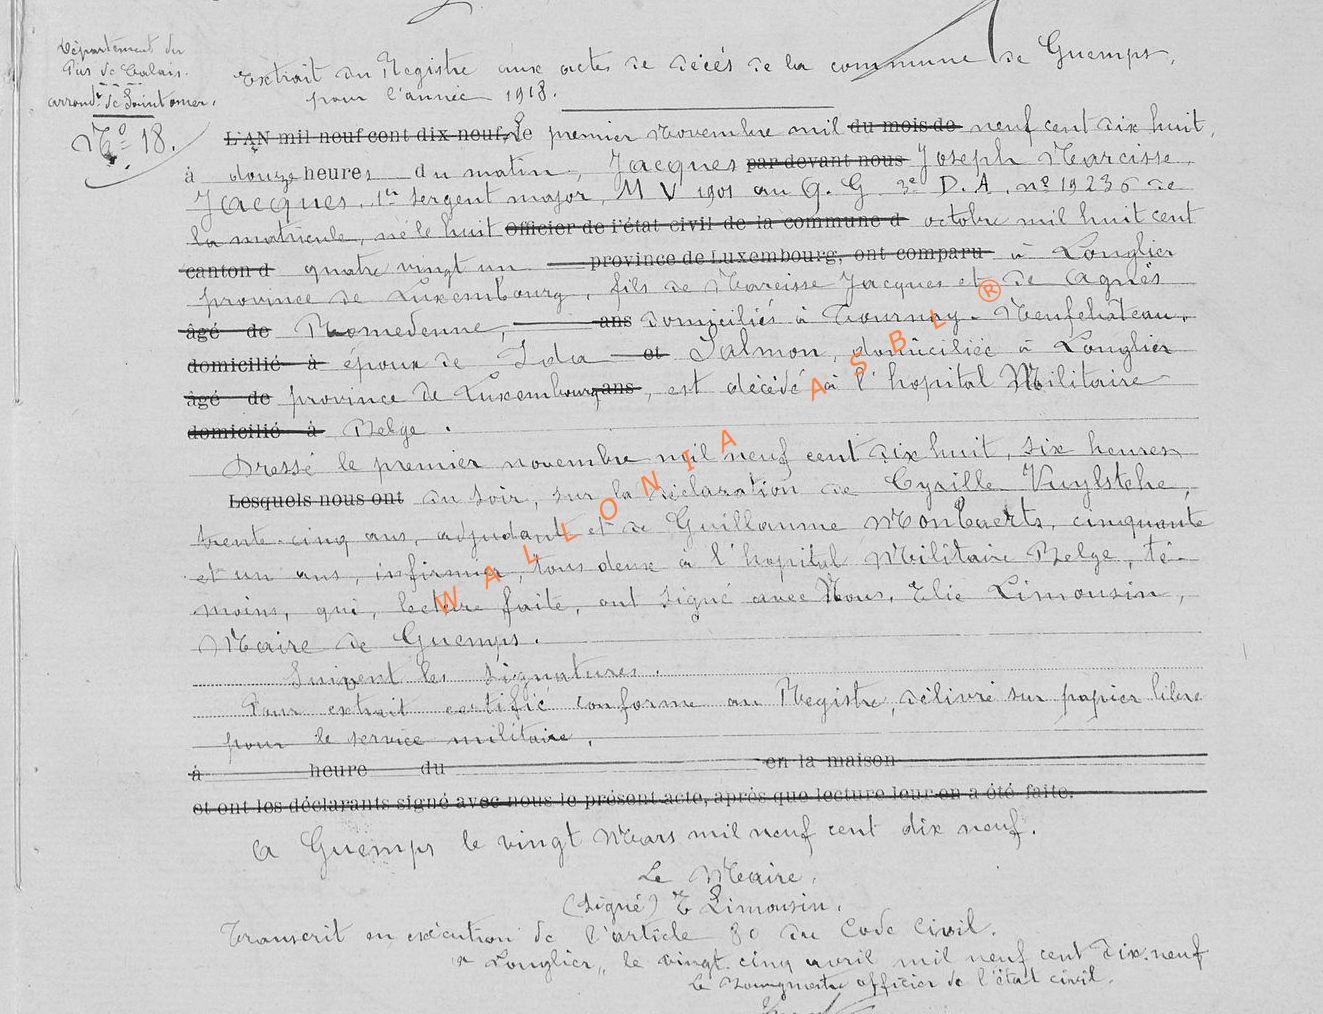 Département du
Pas de Calais.
arrond.t de Saint omer.
N.o 18.
Extrait du Registre aux actes de décès de la commune de Guemps,
pour l'année 1918.
L'AN mil neuf cent dix-neuf, Le premier Novembre mil du mois de neuf cent dix huit,
à douze heures du matin, Jacques par devant nous Joseph Narcisse
Jacques, 1er Sergent major, M V 1901 au G. G 3e D. A. no 19236 de
la matricule, né le huit Officier de l'état civil de la commune d octobre mil huit cent
canton d quatre vingt un province de Luxembourg, ont comparu à Longlier
province de Luxembourg, fils de Narcisse Jacques et de Agnès
âgé de Romedenne, ans domiciliés à Tournay-Neufchâteau,
domicilié à époux de Ida et Salmon, domiciliée à Longlier
âgé de province de Luxembourg ans, est décédé à l'hopital Militaire
domicilié à Belge.
Dressé le premier novembre mil neuf cent dix huit, six heures
Lesquels nous ont du soir, sur la déclaration de Cyrille Vuylsteke,
trente-cinq ans, adjudant et de Guillaume Monbaerts, cinquante
et un ans, infirmier, tous deux à l'hopital Militaire Belge, té-
moins, qui, lecture faite, ont signé avec Nous, Elie Limousin,
Maire de Guemps.
Suivent les signatures.
Pour extrait certifié conforme au Registre, délivré sur papier libre
pour le service militaire.
à heure du en la maison
et ont les déclarants signé avec nous le présent acte, après que lecture leur en a été faite.
A Guemps le vingt Mars mil neuf cent dix neuf.
Le Maire,
(Signé) E Limousin.
Transcrit en exécution de l'article 80 du Code Civil.
à Longlier, le vingt-cinq avril mil neuf cent dix-neuf
Le Bourgmestre officier de l'état civil.
WALLONIA ASBL ®